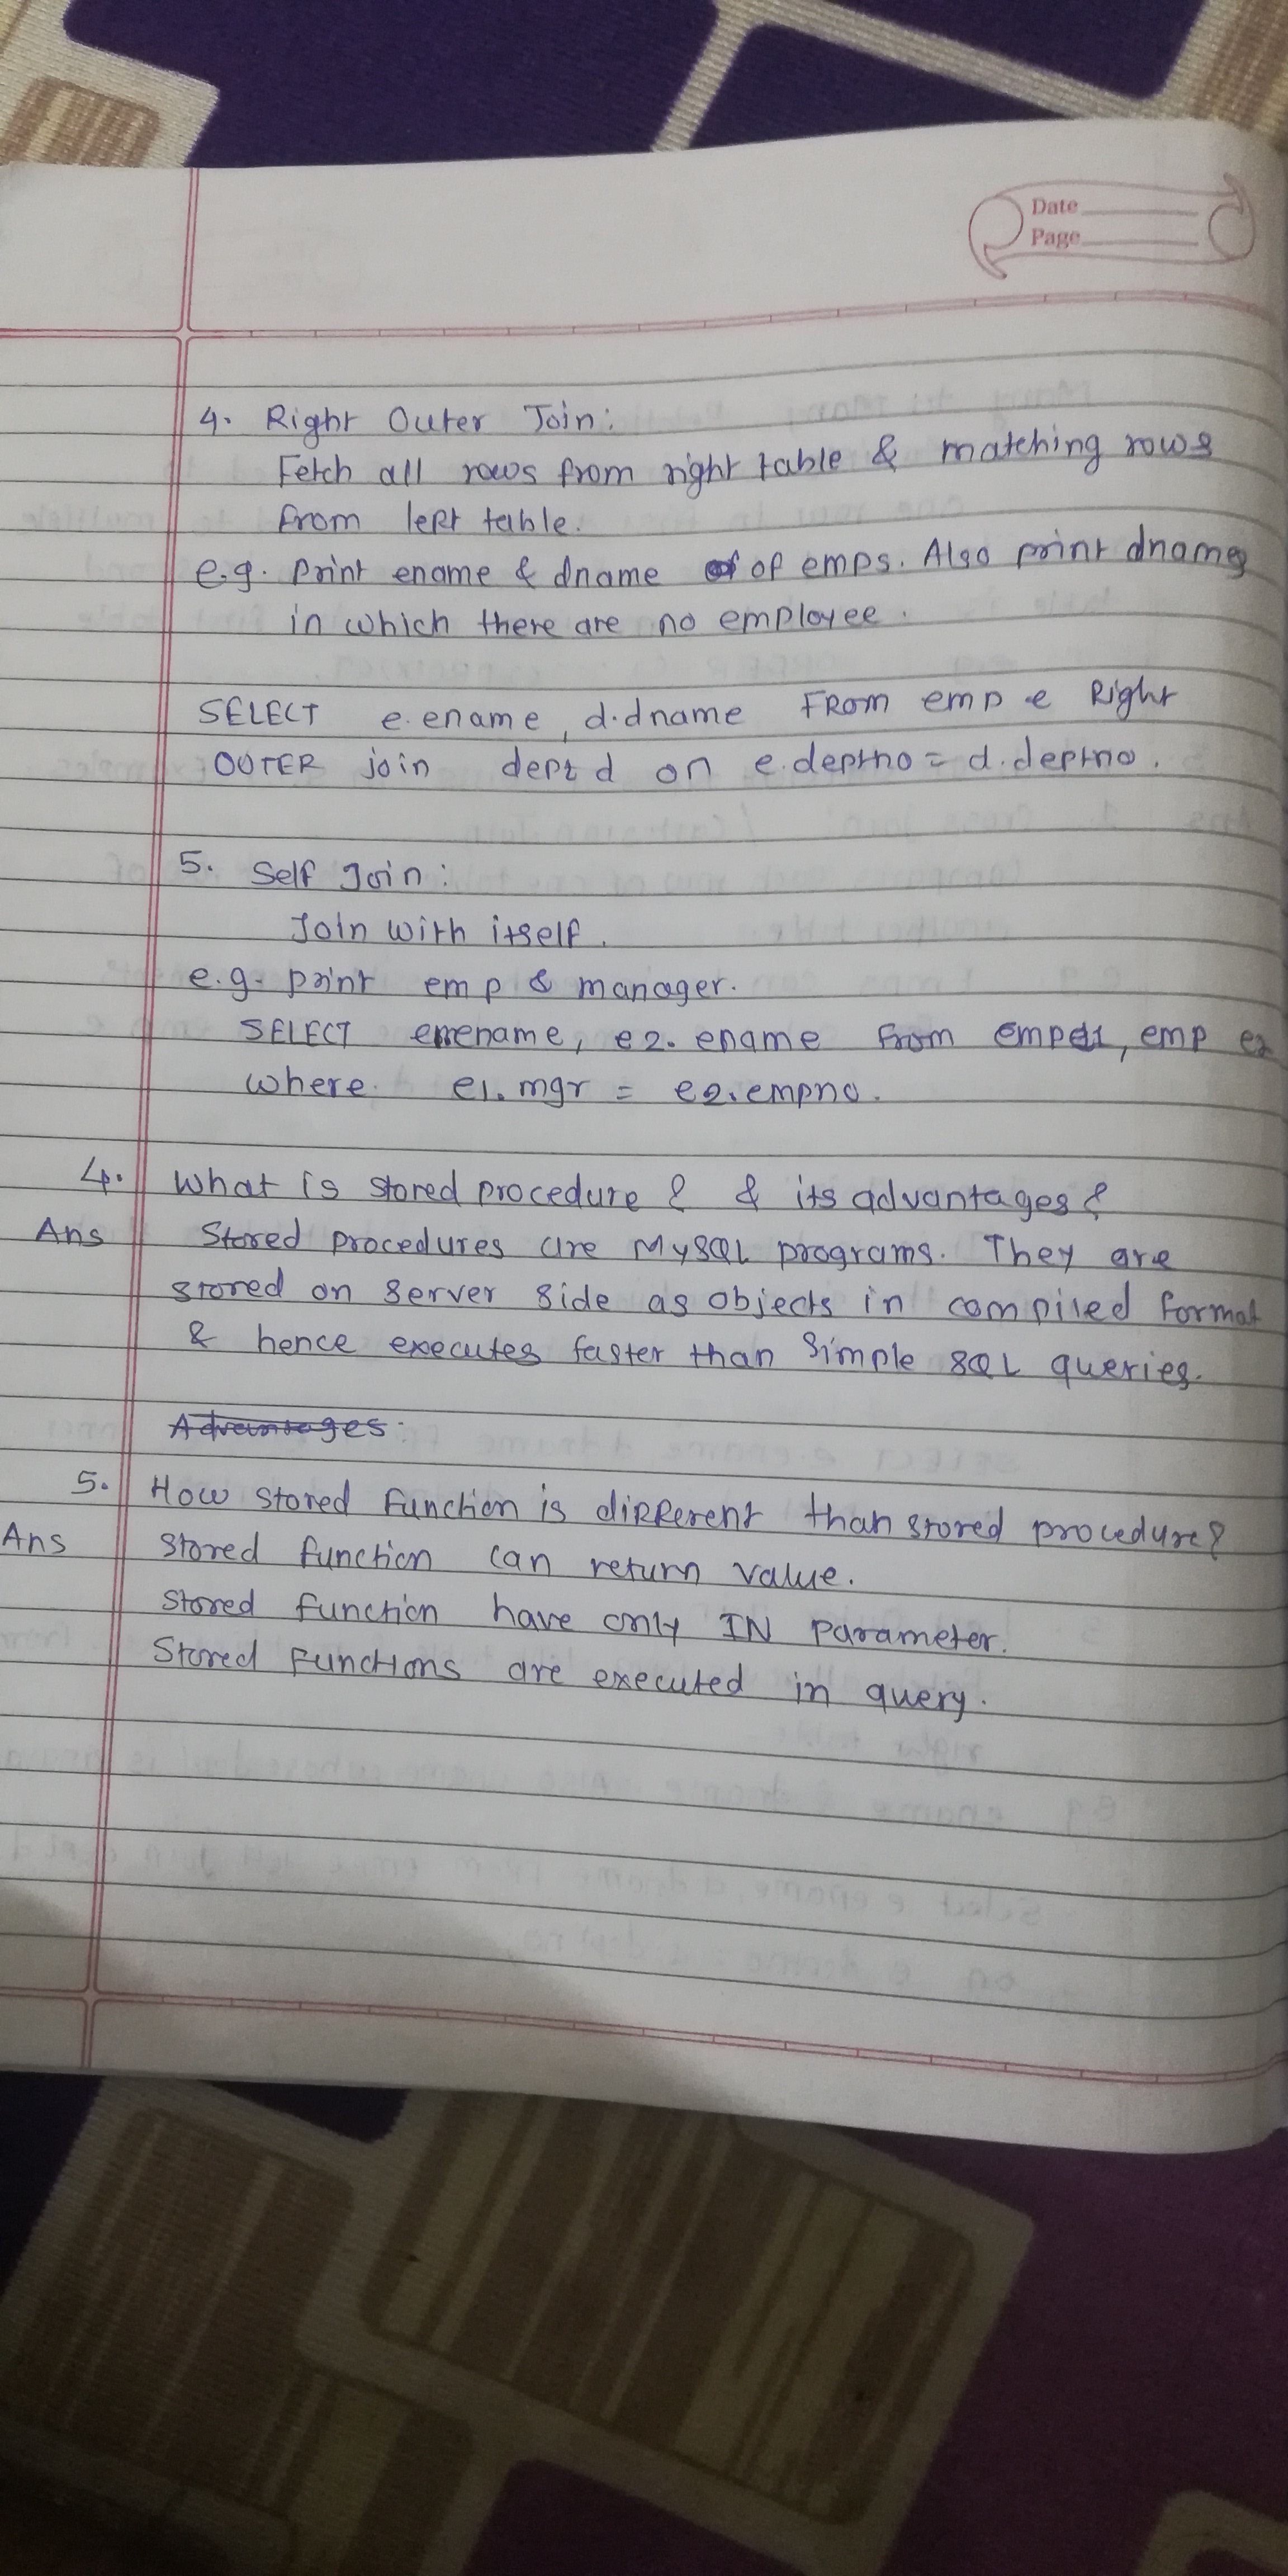 Date
Page
4. Right Outer Join:
Fetch all rows from right table & matching rows
from left table.
e.g. print ename & dname of emps. Also print dnames
in which there are no employee.
SELECT e.ename, d.dname FROM emp e Right
OUTER join dept d on e.deptno = d.deptno.
5. Self Join:
Join with itself.
e.g. print emp & manager.
SELECT ename, e2.ename from emp e1, emp e2
where e1.mgr = e2.empno.
4. What is stored procedure? & its advantages?
Ans Stored procedures are MySQL programs. They are
stored on server side as objects in compiled format
& hence executes faster than simple SQL queries.
Advantages:
5. How stored function is different than stored procedure?
Ans stored function can return value.
stored function have only IN parameter.
Stored functions are executed in query.